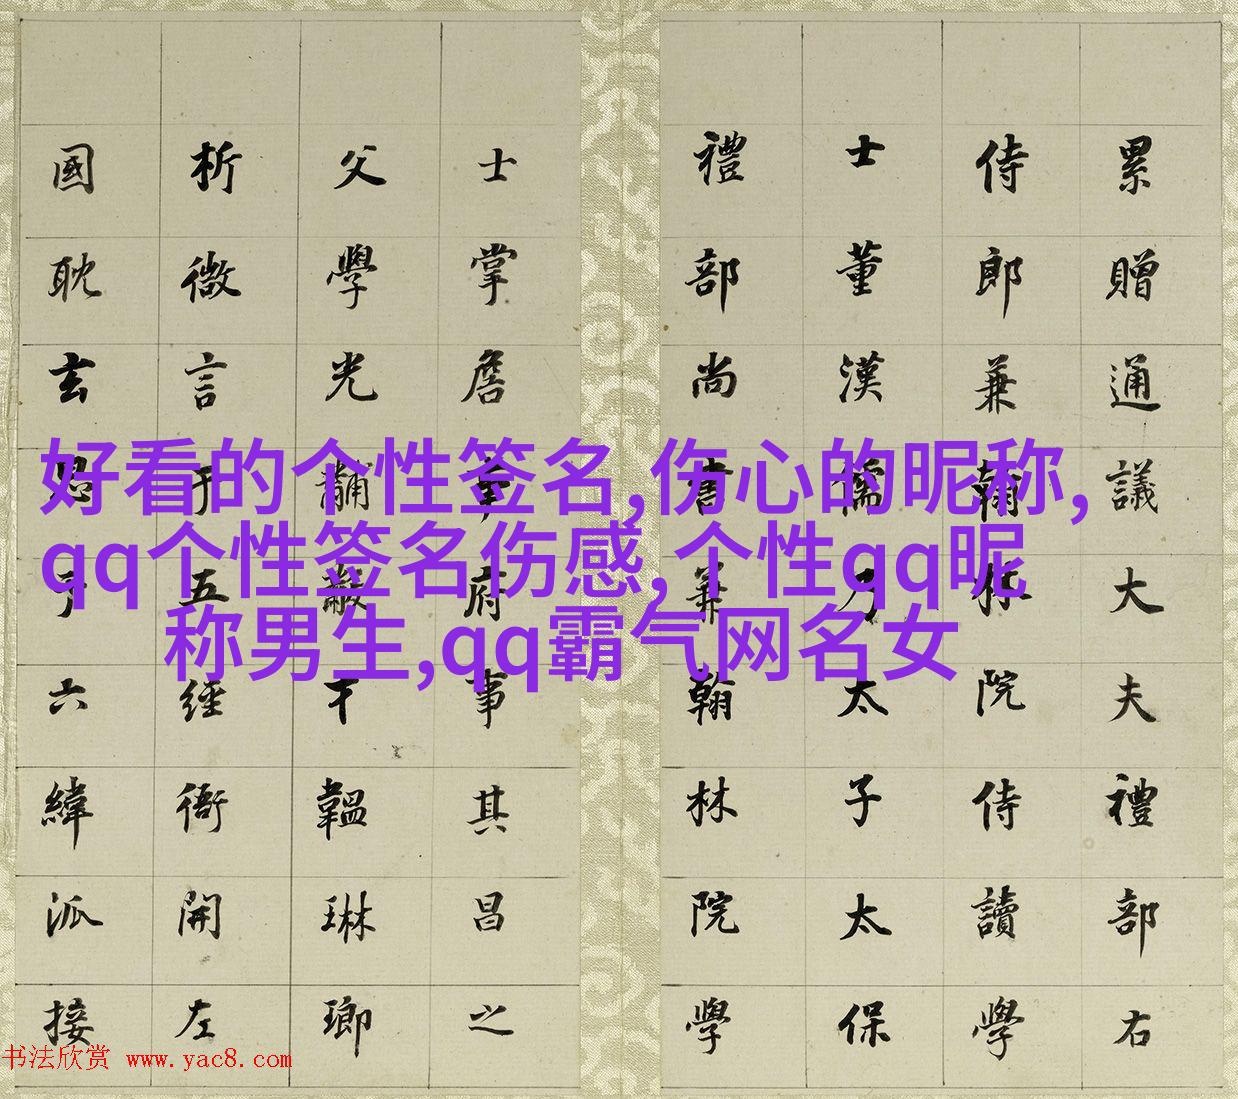 累贈通議大夫禮部右
侍郎兼翰林院侍讀學
士董漢儒乃太子太保
禮部尚書兼翰林院學
士掌詹事府事其昌之
父學光黼黻干韞琳瑯
析微言于五經衙開左
國耽玄思于六緯派接
好看的个性签名,伤心的昵称,
qq个性签名伤感,个性qq昵
称男生,qq霸气网名女
书法欣赏 www.yac8.com